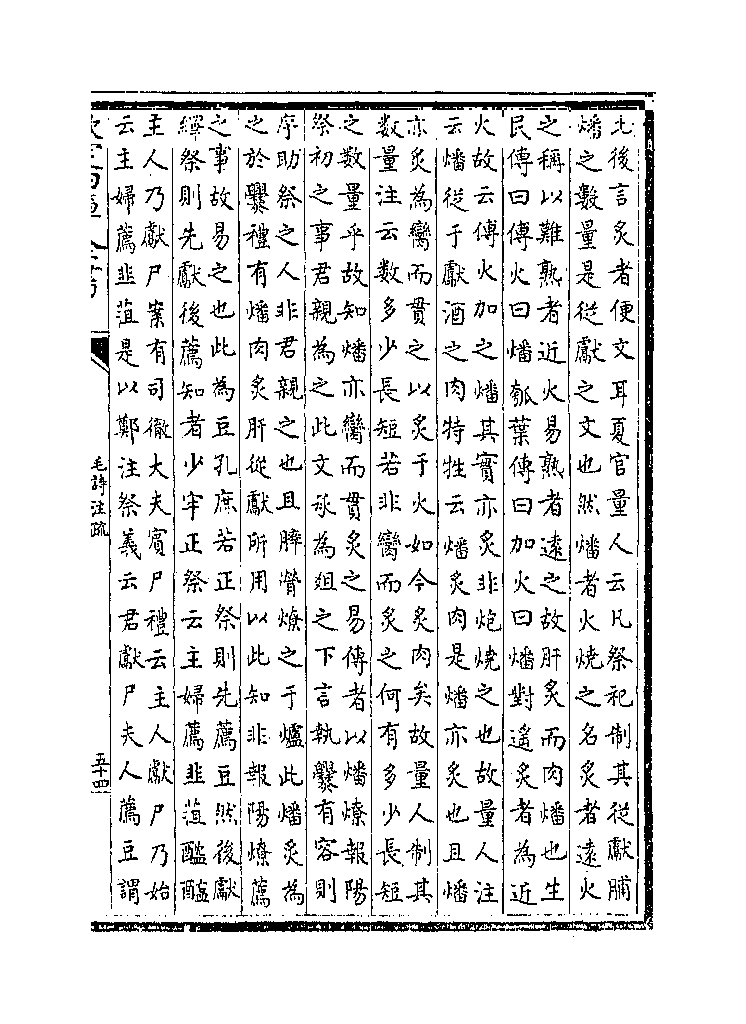 北後言炙者便文耳夏官量人云凡祭祀制其從獻脯
燔之數量是從獻之文也然燔者火燒之名炙者遠火
之稱以難熟者近火易熟者遠之故肝炙而肉燔也生
民傳曰傳火曰燔瓠葉傳曰加火曰燔對遙炙者為近
火故云傅火加之燔其實亦炙非炮燒之也故量人注
云燔從于獻酒之肉特牲云燔炙肉是燔亦炙也且燔
亦炙為臠而貫之以炙于火如今炙肉矣故量人制其
數量注云數多少長短若非臠而炙之何有多少長短
之數量乎故知燔亦臠而貫炙之易傳者以燔燎報陽
祭初之事君親為之此文承為俎之下言執爨有容則
序助祭之人非君親之也且膟膋燎之于爐此燔炙為
之於爨禮有燔肉炙肝從獻所用以此知非報陽燎薦
之事故易之也此為豆孔庶若正祭則先薦豆然後獻
繹祭則先獻後薦知者少牢正祭云主婦薦韭菹醓醢
主人乃獻尸案有司徹大夫賓尸禮云主人獻尸乃始
云主婦薦韭菹是以鄭注祭義云君獻尸夫人薦豆謂
毛詩注疏
五十四